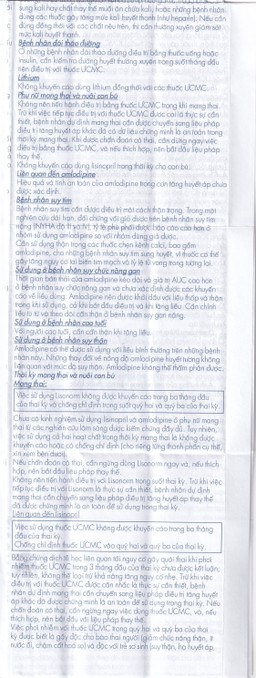 sung kali hay chất thay thế muối ăn chứa kali; hoặc những bệnh nhân
dùng các thuốc gây tăng mức kali huyết thanh (như heparin). Nếu cần
dùng đồng thời với các chất nêu trên, thì cần thường xuyên giám sát
mức kali huyết thanh.
Bệnh nhân đái tháo đường
Ở những bệnh nhân đái tháo đường điều trị bằng thuốc uống hoặc
insulin, cần kiểm tra đường huyết thường xuyên trong suốt tháng đầu
điều trị với thuốc UCMC.
Lithium
Không khuyến cáo dùng lithium đồng thời với các thuốc UCMC.
Phụ nữ mang thai và nuôi con bú
Không nên tiến hành điều trị bằng thuốc UCMC trong khi mang thai.
Trừ khi việc tiếp tục điều trị với thuốc UCMC được coi là thực sự cần
thiết, bệnh nhân dự định mang thai cần được chuyển sang liệu pháp
điều trị tăng huyết áp khác đã có dữ liệu chứng minh là an toàn trong
thời kỳ mang thai. Khi được chẩn đoán có thai, cần dừng ngay việc
điều trị bằng thuốc UCMC, và nếu thích hợp, nên bắt đầu liệu pháp
thay thế.
Không khuyến cáo dùng lisinopril trong thời kỳ cho con bú.
Liên quan đến amlodipine
Hiệu quả và tính an toàn của amlodipine trong cơn tăng huyết áp chưa
được xác định.
Bệnh nhân suy tim
Bệnh nhân suy tim cần được điều trị một cách thận trọng. Trong một
nghiên cứu dài hạn, đối chứng với giả dược trên bệnh nhân suy tim
nặng (NYHA độ III và IV), tỷ lệ phù phổi được báo cáo cao hơn ở
nhóm sử dụng amlodipine so với nhóm dùng giả dược.
Cần sử dụng thận trọng các thuốc chẹn kênh calci, bao gồm
amlodipine, cho những bệnh nhân suy tim sung huyết, vì thuốc có thể
gây tăng nguy cơ tai biến tim mạch và tỷ lệ tử vong trong tương lai.
Sử dụng ở bệnh nhân suy chức năng gan
Thời gian bán thải của amlodipine kéo dài và giá trị AUC cao hơn
ở bệnh nhân suy chức năng gan và chưa xác định được các khuyến
cáo về liều dùng. Amlodipine nên được khởi đầu với liều thấp và thận
trọng khi sử dụng, cả khi bắt đầu điều trị và khi tăng liều. Cần chỉnh
liều từ từ và theo dõi cẩn thận ở bệnh nhân suy gan nặng.
Sử dụng ở bệnh nhân cao tuổi
Với người cao tuổi, cần cẩn thận khi tăng liều.
Sử dụng ở bệnh nhân suy thận
Amlodipine có thể được sử dụng với liều bình thường trên những bệnh
nhân này. Những thay đổi về nồng độ amlodipine huyết tương không
liên quan với mức độ suy thận. Amlodipine không thể thẩm phân được.
Thời kỳ mang thai và nuôi con bú
Mang thai:
Việc sử dụng Lisonorm không được khuyến cáo trong ba tháng đầu
của thai kỳ và chống chỉ định trong suốt quý hai và quý ba của thai kỳ.
Chưa có kinh nghiệm sử dụng lisinopril và amlodipine ở phụ nữ mang
thai từ các nghiên cứu lâm sàng được kiểm chứng đầy đủ. Tuy nhiên,
việc sử dụng cả hai hoạt chất trong thời kỳ mang thai là không được
khuyến cáo hoặc có chống chỉ định (cho riêng từng thành phần cụ thể
xin xem bên dưới).
Nếu chẩn đoán có thai, cần ngừng dùng Lisonorm ngay và, nếu thích
hợp, nên bắt đầu liệu pháp thay thế.
Không nên tiến hành điều trị với Lisonorm trong suốt thai kỳ. Trừ khi việc
tiếp tục điều trị với Lisonorm là thực sự cần thiết, bệnh nhân dự định
mang thai cần chuyển sang liệu pháp điều trị tăng huyết áp thay thế
đã được chứng minh là an toàn để sử dụng trong thai kỳ.
Liên quan đến lisinopril
Việc sử dụng thuốc UCMC không được khuyến cáo trong ba tháng
đầu của thai kỳ.
Chống chỉ định thuốc UCMC vào quý hai và quý ba của thai kỳ.
Bằng chứng dịch tễ học liên quan tới nguy cơ gây quái thai khi phơi
nhiễm thuốc UCMC trong 3 tháng đầu của thai kỳ chưa được kết luận;
tuy nhiên, không thể loại trừ khả năng tăng nguy cơ nhẹ. Trừ khi việc
điều trị với thuốc UCMC được cân nhắc là thực sự cần thiết, bệnh
nhân dự định mang thai cần chuyển sang liệu pháp điều trị tăng huyết
áp khác đã được chứng minh là an toàn để sử dụng trong thai kỳ. Nếu
chẩn đoán có thai, cần ngừng ngay việc dùng thuốc UCMC, và, nếu
thích hợp, nên bắt đầu với liệu pháp thay thế.
Việc phơi nhiễm với thuốc UCMC trong quý hai và quý ba của thai
kỳ được biết là gây độc cho bào thai người (giảm chức năng thận, ít
nước ối, chậm cốt hóa sọ) và độc với trẻ sơ sinh (suy thận, hạ huyết áp,